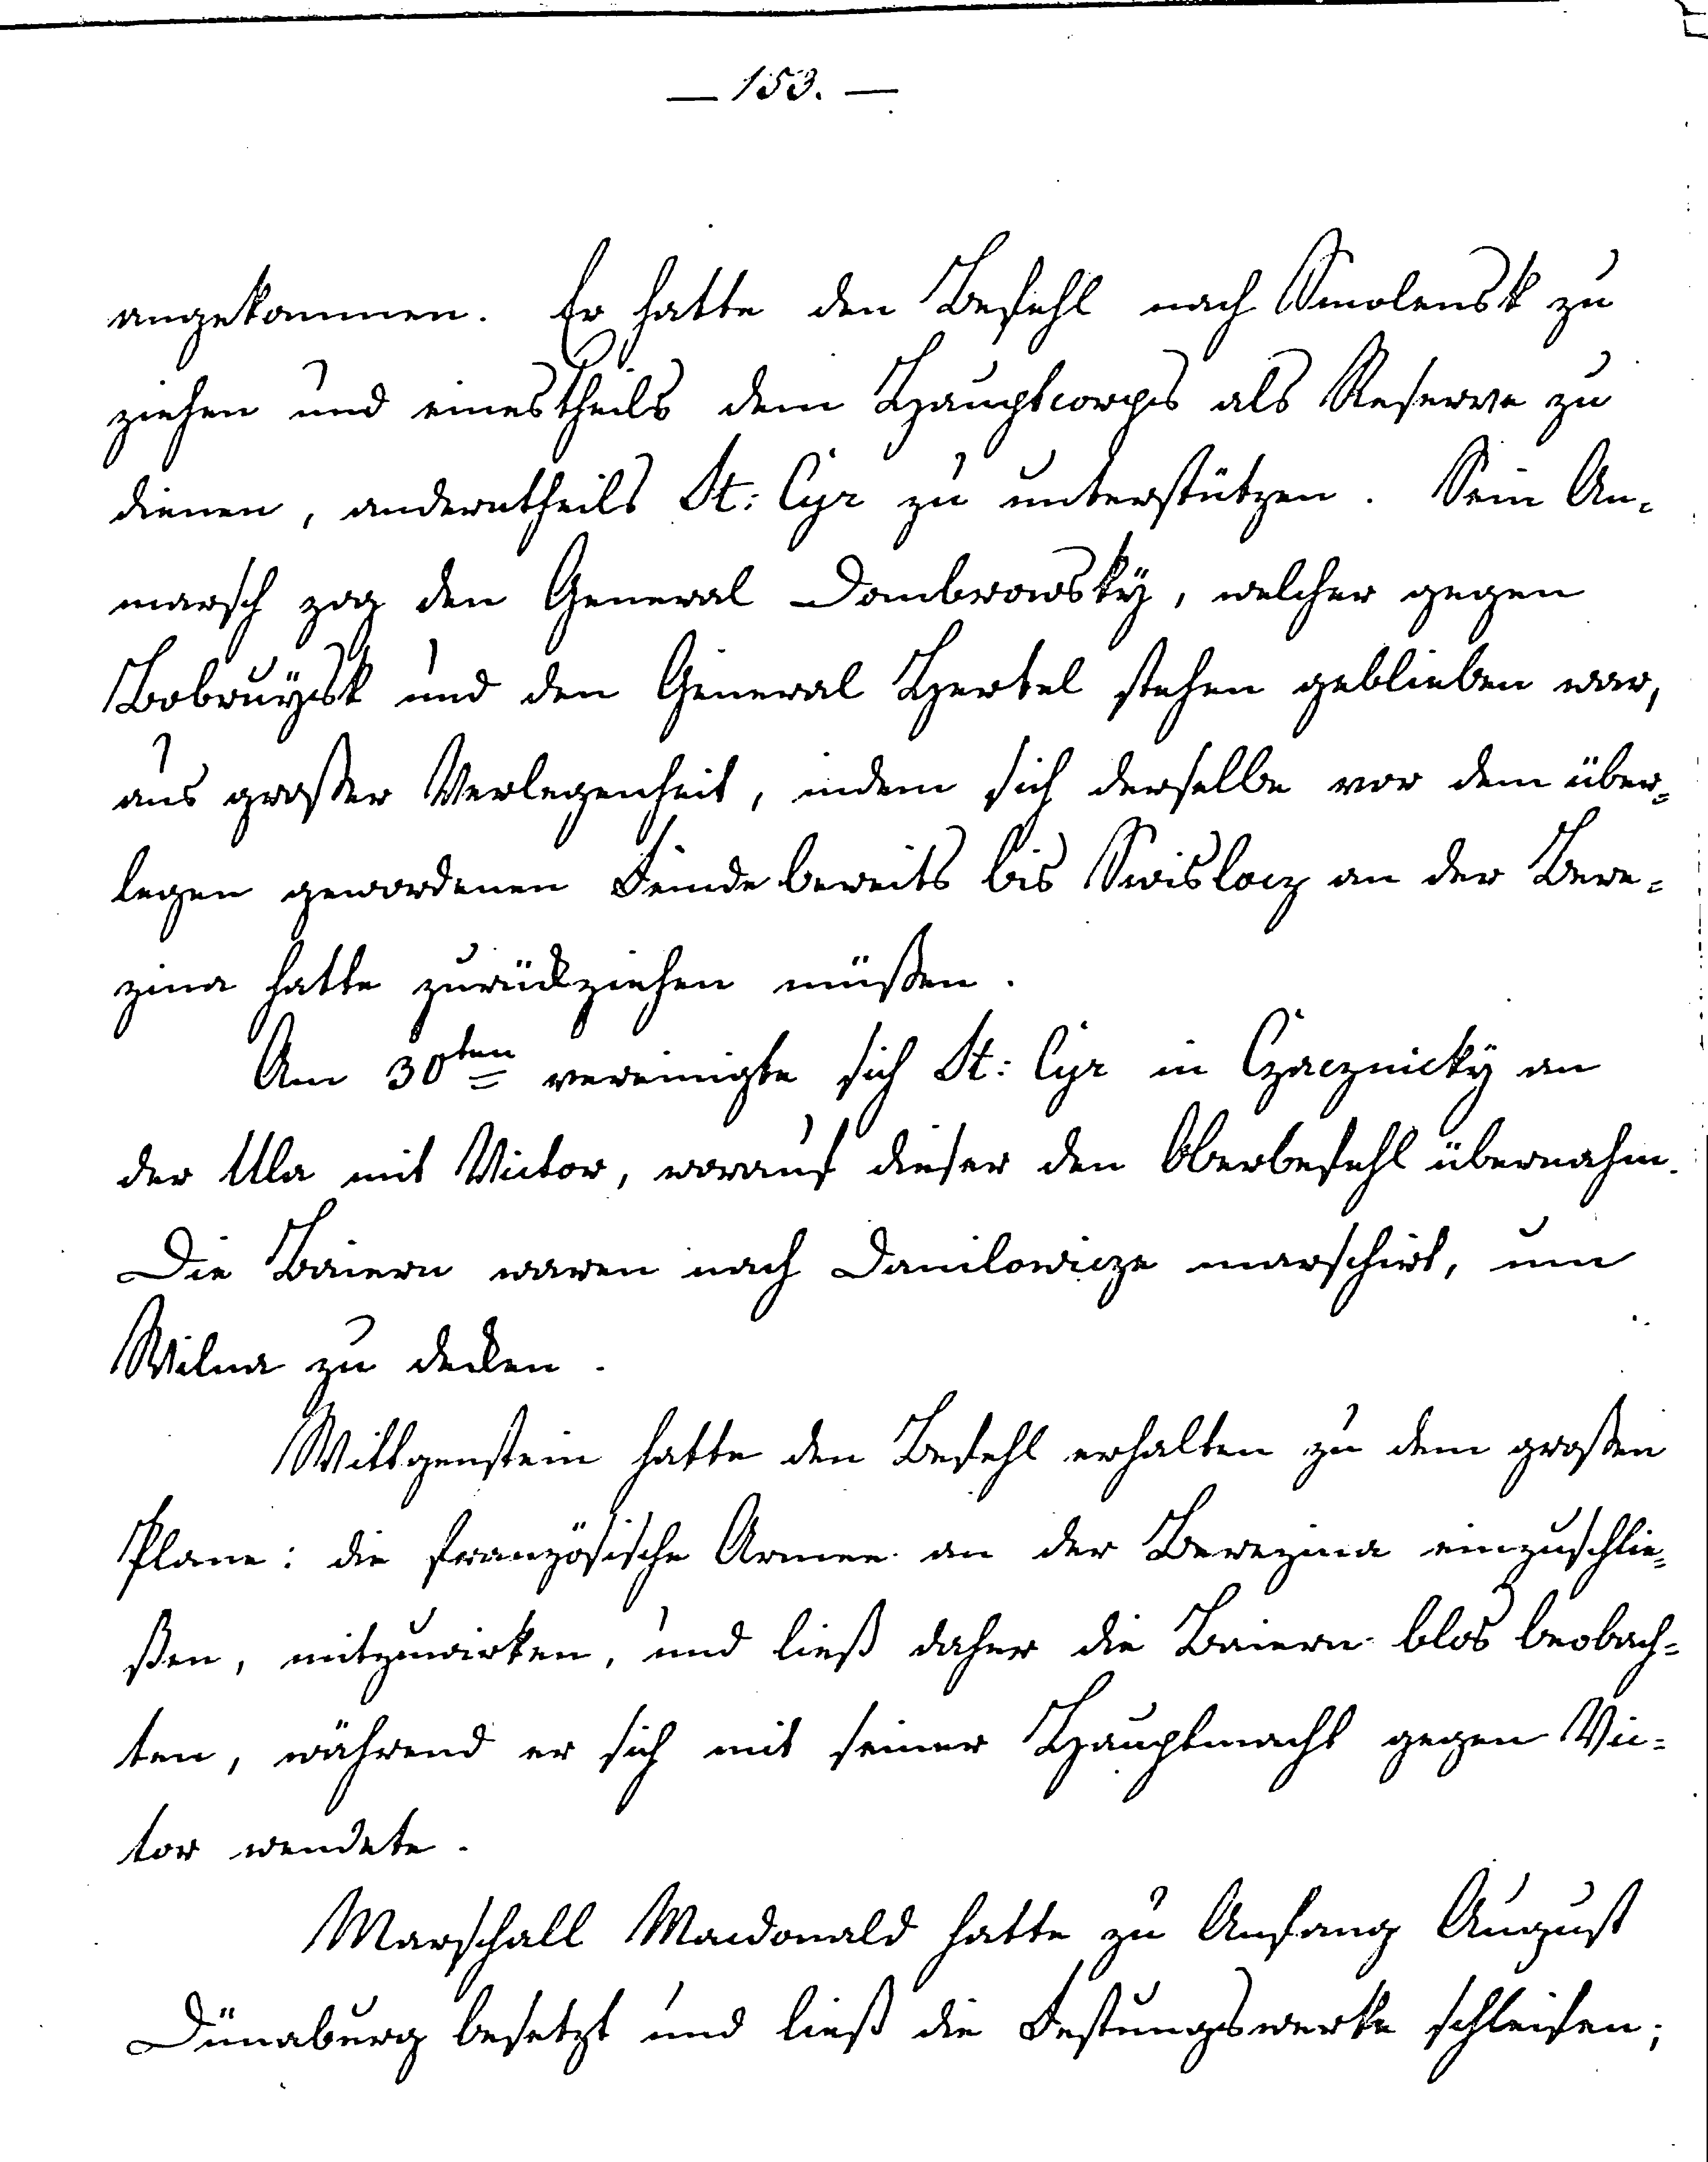 — 153. —
angekommen. Er hatte den Befehl nach Smolensk zu
ziehen und einestheils dem Hauptcorps als Reserve zu
dienen, anderntheils St: Cyr zu unterstützen. Sein An-
marsch zog den General Dombrowskÿ, welcher gegen
Bobruÿsk und den General Hertel stehen geblieben war,
aus großer Verlegenheit, indem sich derselbe vor dem über-
legen gewordenen Feinde bereits bis Swislocz an der Bere-
zina hatte zurückziehen müßen.
Am 30ten vereinigte sich St: Cyr in Czaeznickÿ an
der Ula mit Victor, worauf dieser den Oberbefehl übernahm.
Die Baiern waren nach Danilowicze marschirt, um
Wilna zu decken.
Wittgenstein hatte den Befehl erhalten zu dem großen
Plane: die französische Armee an der Berezina einzuschlie-
ßen, mitzuwirken, und ließ daher die Baiern blos beobach-
ten, während er sich mit seiner Hauptmacht gegen Vic-
tor wendete.
Marschall Macdonald hatte zu Anfang August
Dünaburg besetzt und ließ die Festungswerke schleifen;